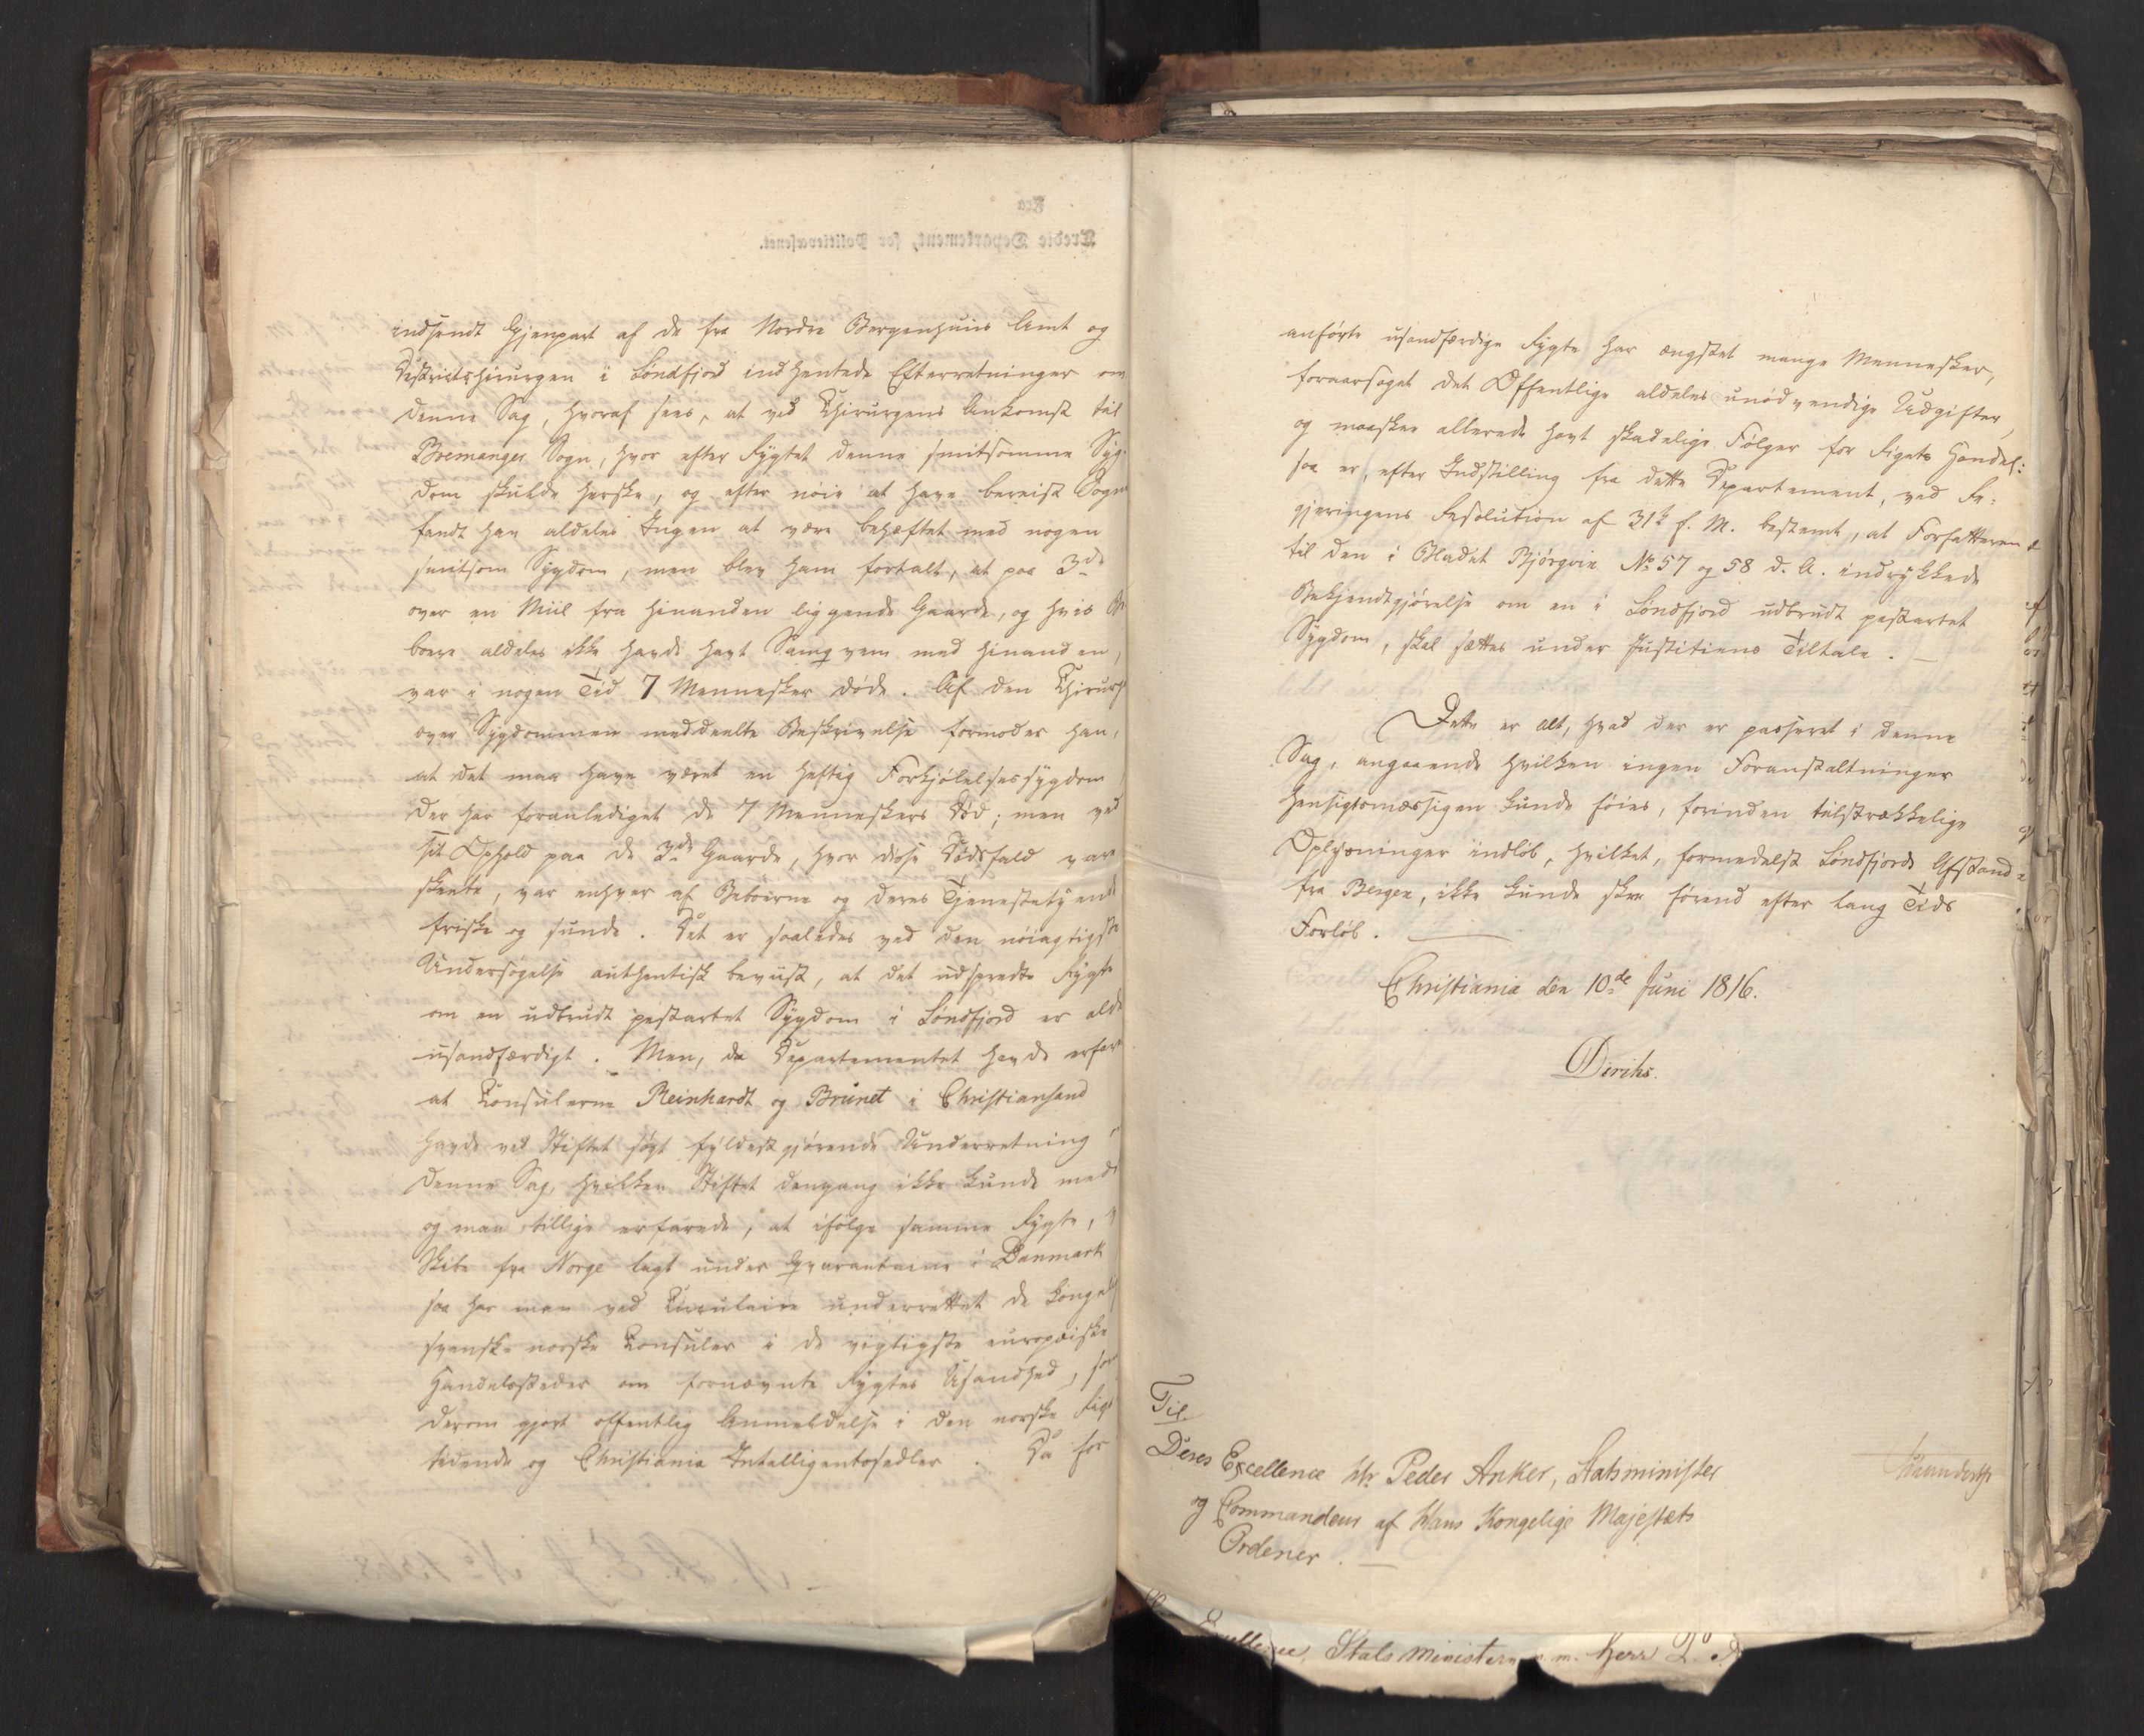 indsendt Gjenpart af de fra Nordre Bergenhuus Amt og
Districtschirurgen i Söndfjord indhentede Efterretninger om
denne Sag, hvoraf sees, at ved Chirurgens Ankomst til
Bremanger Sogn, hvor efter Rygtet denne smitsomme Syg-
dom skulde herske, og efter nöie at have bereist Sogne
fandt han aldeles Ingen at være behæftet med nogen
smitsom Sygdom, men blev ham fortalt, at paa 3de
over en Miil fra hinanden liggende Gaarde, og hvis Be
boere aldeles ikke havde havt Samqvem med hinanden,
var i nogen Tid 7 Mennesker döde. Af den Chirur
over Sygdommen meddeelte Beskrivelse formoder han,
at det maa have været en heftig Forkjölelsessygdom
der har foranlediget de 7 Menneskers Död; men ved
sit Ophold paa de 3de Gaarde, hvor disse Dödsfald vare
skeete, var enhver af Beboerne og deres Tjenestetyende
friske og sunde. Det er saaledes ved den nöiagtigste
Undersögelse authentisk beviist, at det udspredte Rygte
om en udbrudt pestartet Sygdom i Söndfjord er alde
usandfærdigt. Men, da Departementet havde erfar
at Consulerne Reinhardt og Brunet i Christiansand
havde ved Stiftet sögt fyldestgjörende Underretning
denne Sag, hvilken Stiftet dengang ikke kunde med
og man tillige erfarede, at ifölge samme Rygte,
Skibe fra Norge lagt under Qvarantaine i Danmark
saa har man ved Circulaire underrettet de Kongel
svensk-norske Consuler i de vigtigste europæiske
Handelsstæder om fornævnte Rygtes Usandhed, som
derom gjort offentlig Anmeldelse i den norske Rigs
tidende og Christiania Intelligentssedler. Da for
anförte usandfærdige Rygte har ængstet mange Mennesker,
foraarsaget det Offentlige aldeles unödvendige Udgifter,
og maaskee allerede havt skadelige Fölger for Rigets Handel:
saa er, efter Indstilling fra dette Departement, ved Re-
gjeringens Resolution af 31te f. M. bestemt, at Forfatteren
til den i Bladet Bjørgvin No 57 og 58 d. A. indrykkede
Bekjendtgjörelse om en i Söndfjord udbrudt pestartet
Sygdom, skal sættes under Justitiens Tiltale. —
Dette er alt, hvad der er passeret i denne
Sag, angaaende hvilken ingen Foranstaltninger
hensigtsmæssigen kunde föies, forinden tilstrækkelige
Oplysninger indlöb, hvilket, formedelst Söndfjords Afstand
fra Bergen, ikke kunde skee förend efter lang Tids
Forlöb. —
Christiania den 10de Juni 1816.
Diriks.
Til
Deres Excellence Hr. Peder Anker, Statsminister
og Commandeur af Hans Kongelige Majestæts
Ordener. —
Excellence, Stats ministern m. m. Herr P.